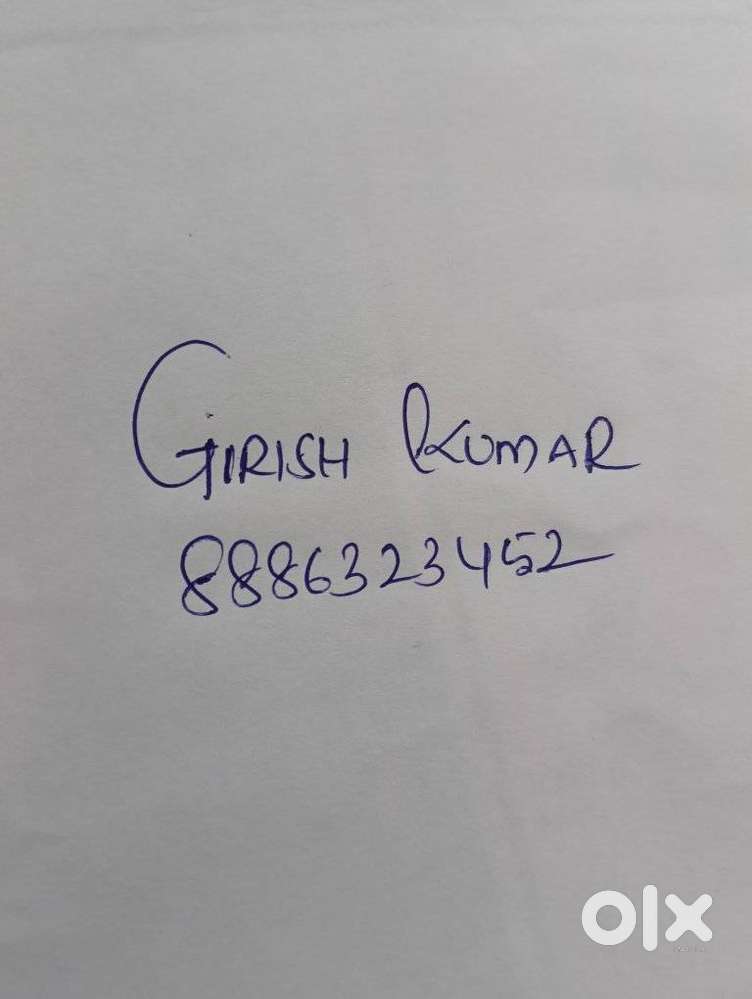 GIRISH KUMAR
8886323452
olx